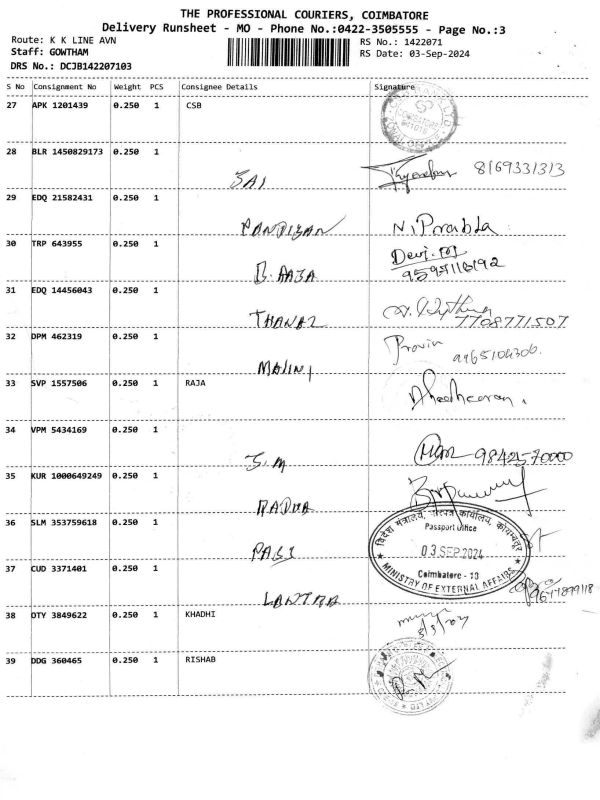 THE PROFESSIONAL COURIERS, COIMBATORE
Delivery Runsheet - MO - Phone No.:0422-3505555 - Page No.:3
Route: K K LINE AVN
RS No.: 1422071
Staff: GOWTHAM
RS Date: 03-Sep-2024
DRS No.: DCJB142207103
S No Consignment No Weight PCS Consignee Details Signature
27 APK 1201439 0.250 1 CSB
28 BLR 1450829173 0.250 1
SAI 8169331313
29 EDQ 21582431 0.250 1
PANDIYAN N. Prabha
30 TRP 643955 0.250 1
B. RAJA Devi. M
31 EDQ 14456043 0.250 1
7708771507
32 DPM 462319 0.250 1
MALINI Pravin
33 SVP 1557506 0.250 1 RAJA
34 VPM 5434169 0.250 1
S.M 9842570000
35 KUR 1000649249 0.250 1
RADHA
36 SLM 353759618 0.250 1
विदेश मंत्रालय, पासपोर्ट कार्यालय, कोयम्बत्तूर
Passport Office
03 SEP 2024
Coimbatore - 13
MINISTRY OF EXTERNAL AFFAIRS
37 CUD 3371401 0.250 1
38 OTY 3849622 0.250 1 KHADHI
39 DDG 360465 0.250 1 RISHAB